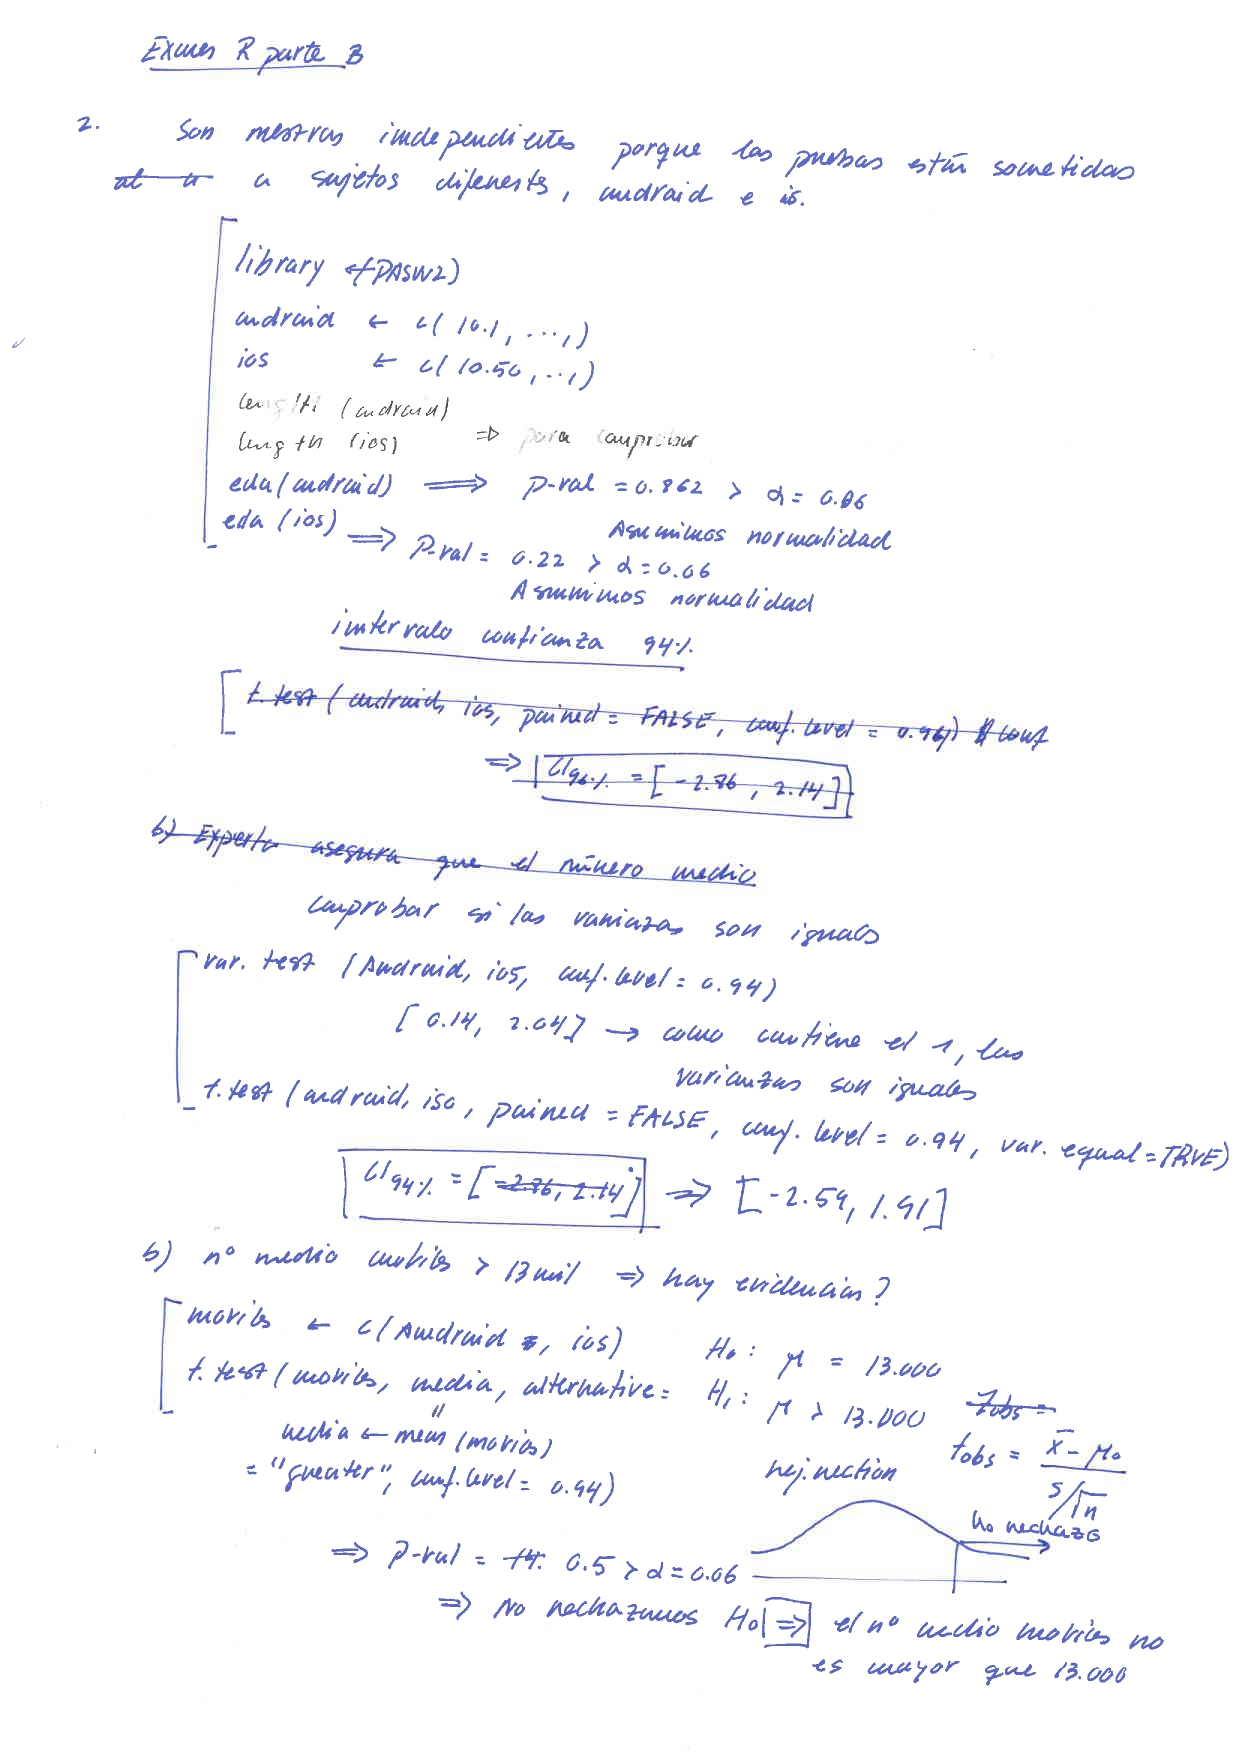 Examen R parte B
2. Son mestras independientes porque las pruebas están sometidas
a sujetos diferents, android e ios.
library (PASWR2)
android ← c( 10.1, ...,)
ios ← c( 10.50, ..,)
length (android)
length (ios) ⇒ para comprobar
eda(android) ⟹ p-val = 0.862 > α = 0.06
Asumimos normalidad
eda (ios) ⟹ p-val = 0.22 > α = 0.06
Asumimos normalidad
intervalo confianza 94%
t.test (android, ios, paired = FALSE, conf.level = 0.94) $ conf
⇒ CI94% = [-2.76, 2.14]
b) Experto asegura que el número medio
comprobar si las varianzas son iguals
var. test (Android, ios, conf.level = 0.94)
[ 0.14, 2.04] → como contiene el 1, las
varianzas son iguales
t.test (android, iso, paired = FALSE, conf. level = 0.94, var. equal = TRUE)
CI94% = [-2.76, 2.14] ⇒ [-2.59, 1.91]
b) nº medio mobiles > 13 mil ⇒ hay evidencias?
moviles ← c(Android, ios) H0 : μ = 13.000
t. test (moviles, media, alternative = H1 : μ > 13.000 Zobs =
"
media ← mean (moviles) tobs = x̄ - μ0 / s/√n
= "greater", conf.level = 0.94) rejection
H0 rechazo
⇒ p-val = 0.5 > α = 0.06
⇒ No rechazamos H0 ⇒ el nº medio mobiles no
es mayor que 13.000